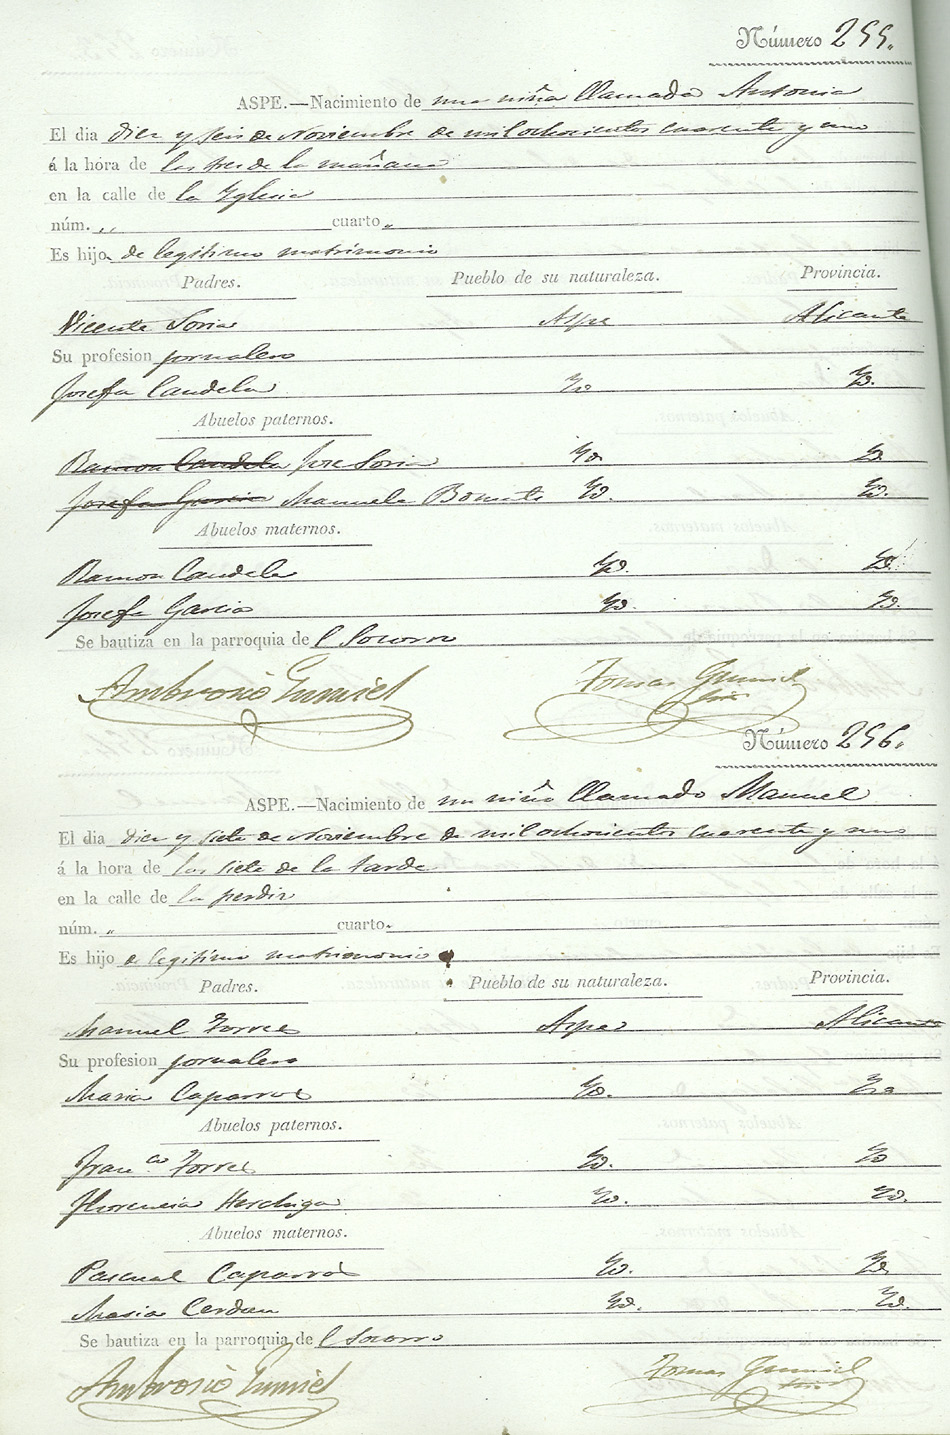 Número 255.
ASPE.—Nacimiento de una niña llamada Antonia
El dia diez y seis de Noviembre de mil ochocientos cuarenta y uno
á la hora de las tres de la mañana
en la calle de la Yglesia
núm. „ cuarto „
Es hijo de legitimo matrimonio
Padres. Pueblo de su naturaleza. Provincia.
Vicente Soria Aspe Alicante
Su profesion jornalero
Josefa Candela Yd. Yd.
Abuelos paternos.
Ramon Candela Jose Soria Yd. Yd.
Josefa Garcia Manuela Yd. Yd.
Abuelos maternos.
Ramon Candela Yd. Yd.
Josefa Garcia Yd. Yd.
Se bautiza en la parroquia de l Socorro
Ambrosio Gumiel Tomas Gumiel
Número 256.
ASPE.—Nacimiento de un niño llamado Manuel
El dia diez y siete de Noviembre de mil ochocientos cuarenta y uno
á la hora de las siete de la tarde
en la calle de la
núm. „ cuarto
Es hijo de legitimo matrimonio
Padres. Pueblo de su naturaleza. Provincia.
Manuel Torres Aspe Alicante
Su profesion jornalero
Maria Caparros Yd. Yd.
Abuelos paternos.
Fran.co Torres Yd. Yd.
Florencia Yd. Yd.
Abuelos maternos.
Pascual Caparrós Yd. Yd.
Maria Cerdan Yd. Yd.
Se bautiza en la parroquia de l Socorro
Ambrosio Gumiel Tomas Gumiel